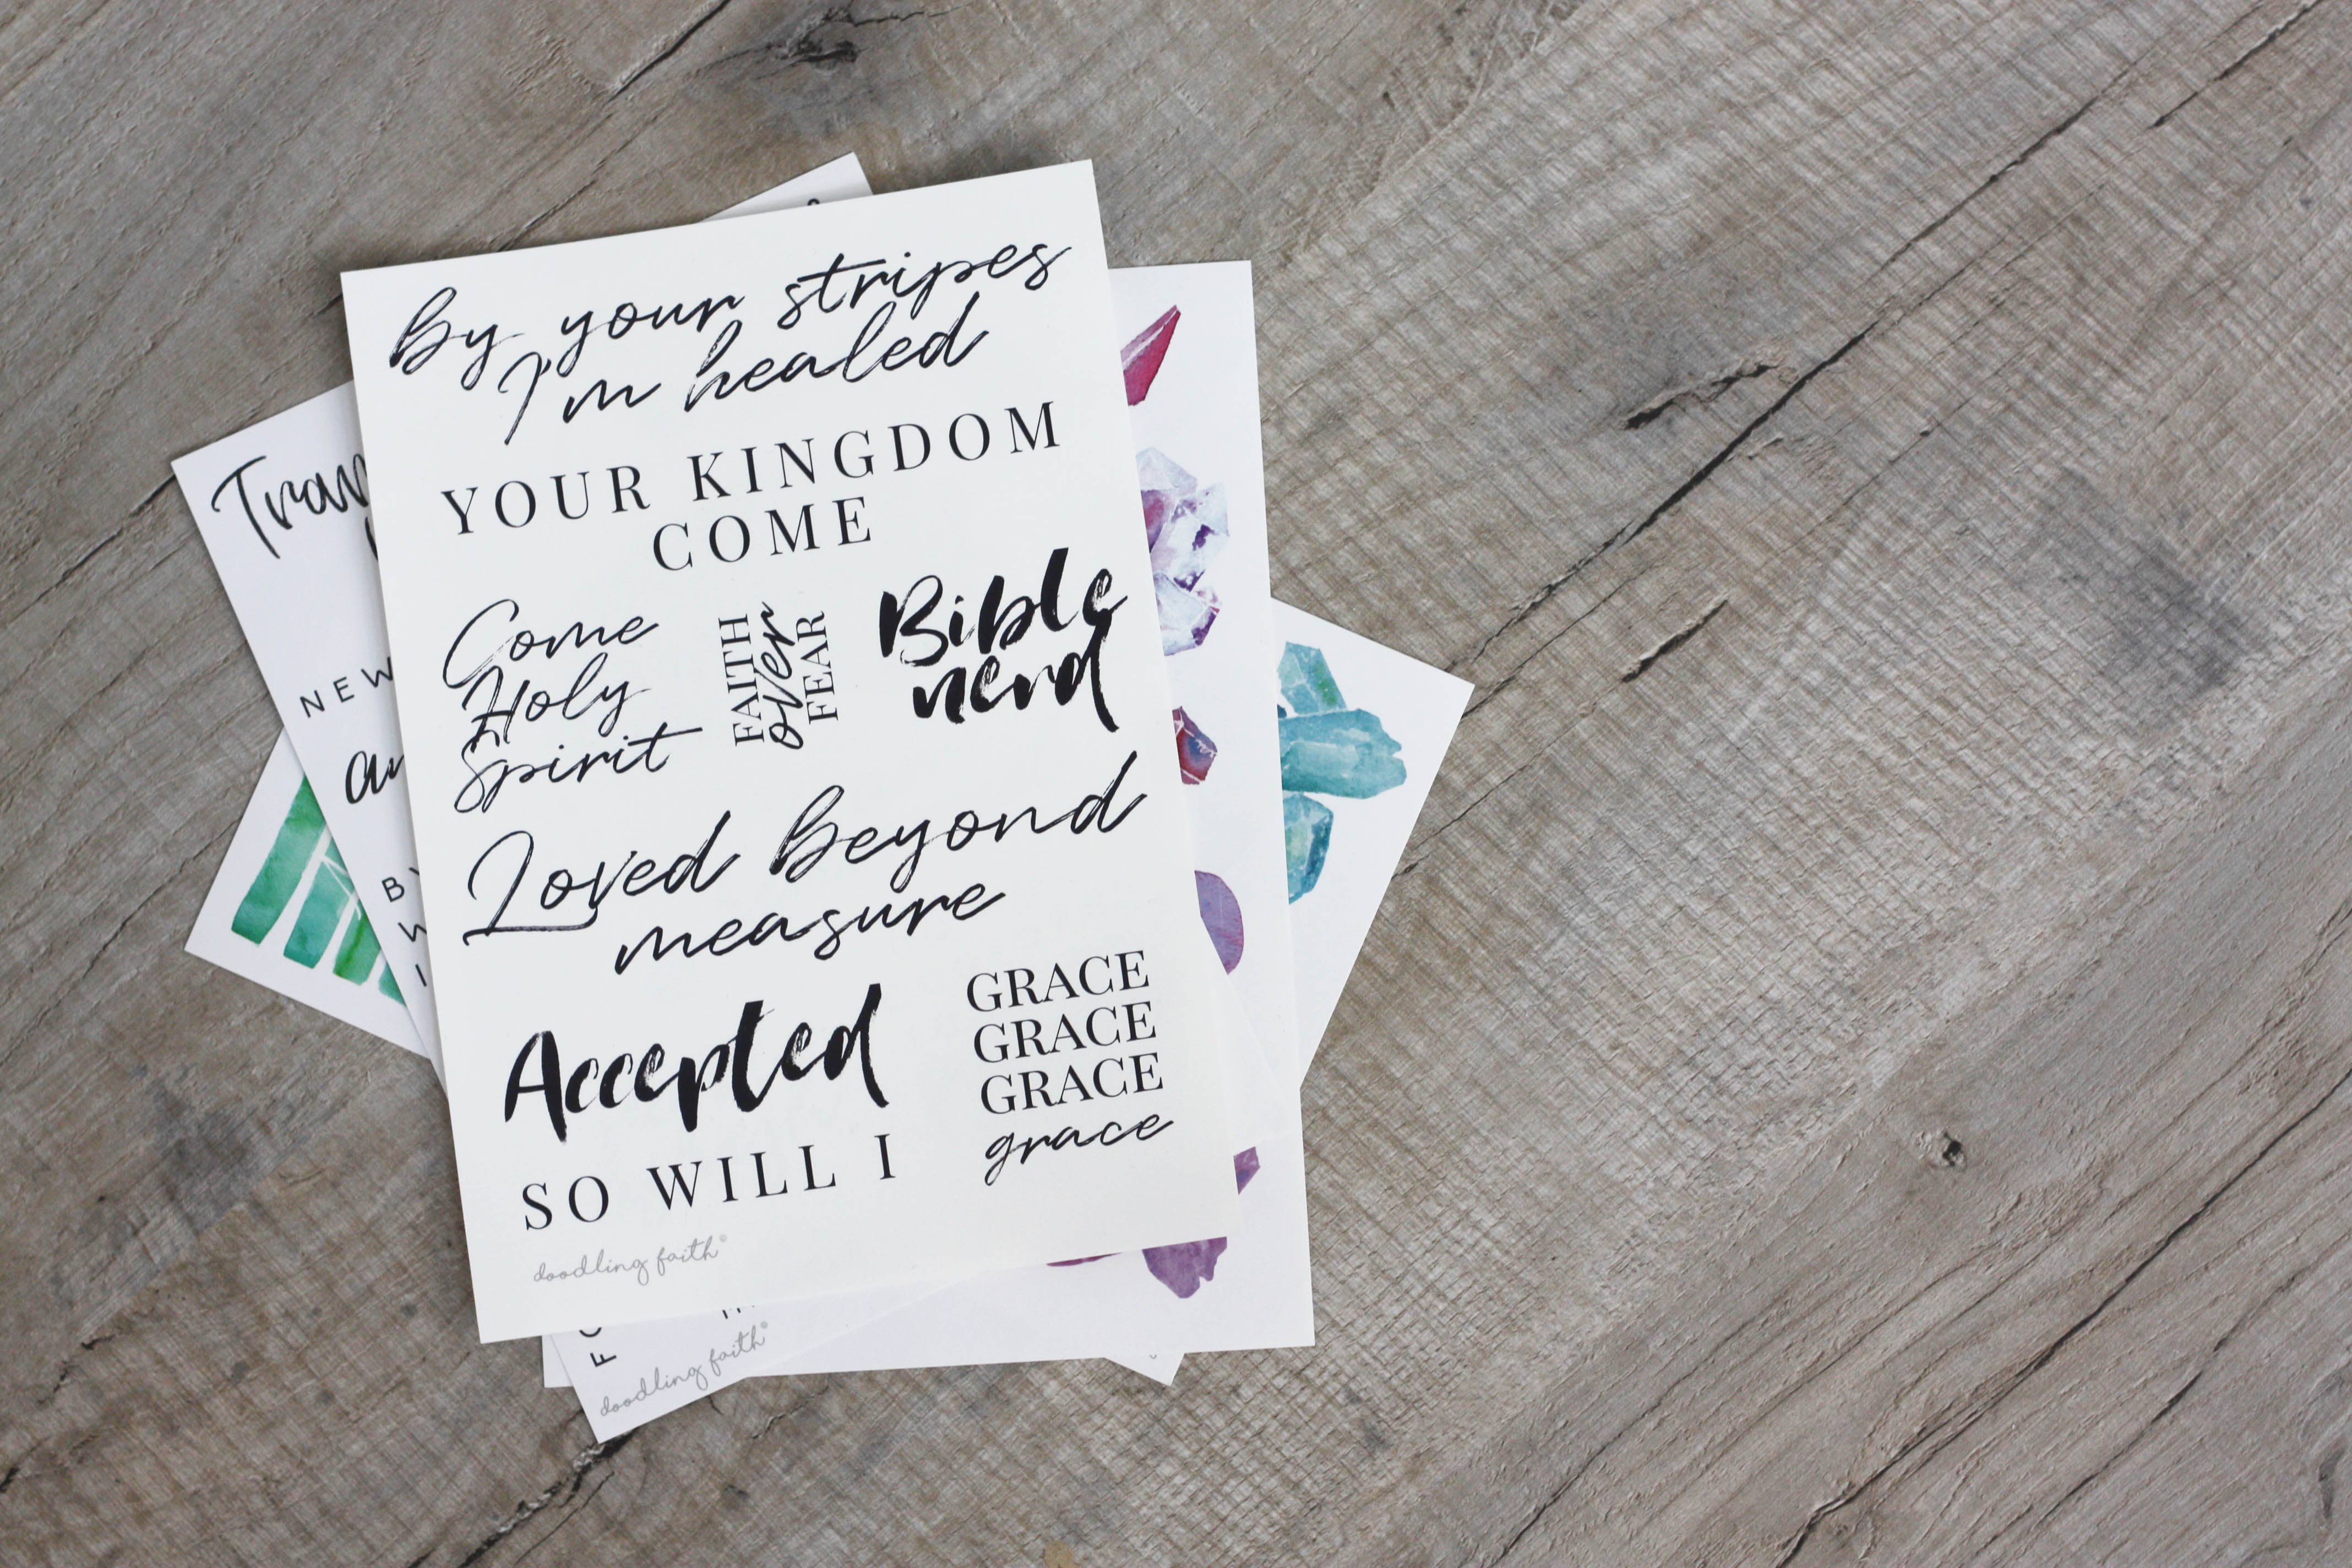 By your stripes
I'm healed
YOUR KINGDOM
COME
Come
Holy
Spirit
FAITH
over
FEAR
Bible
nerd
Loved Beyond
measure
Accepted
GRACE
GRACE
GRACE
grace
SO WILL I
doodling faith®
NEW
doodling faith®